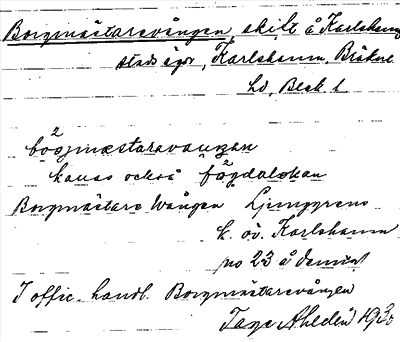 Borgmästarevången, skilt å Karlshamns
stads ägor, Karlshamn, Bräkne
hd, Blek. l.
bo²gmæstaravaŋŋən
kallas också fögdaløkan
Borgmästare Wången Ljunggrens
k. öv. Karlshamn
no 23 å
I offic. handl. Borgmästarevången
Tage Ahldén 1930